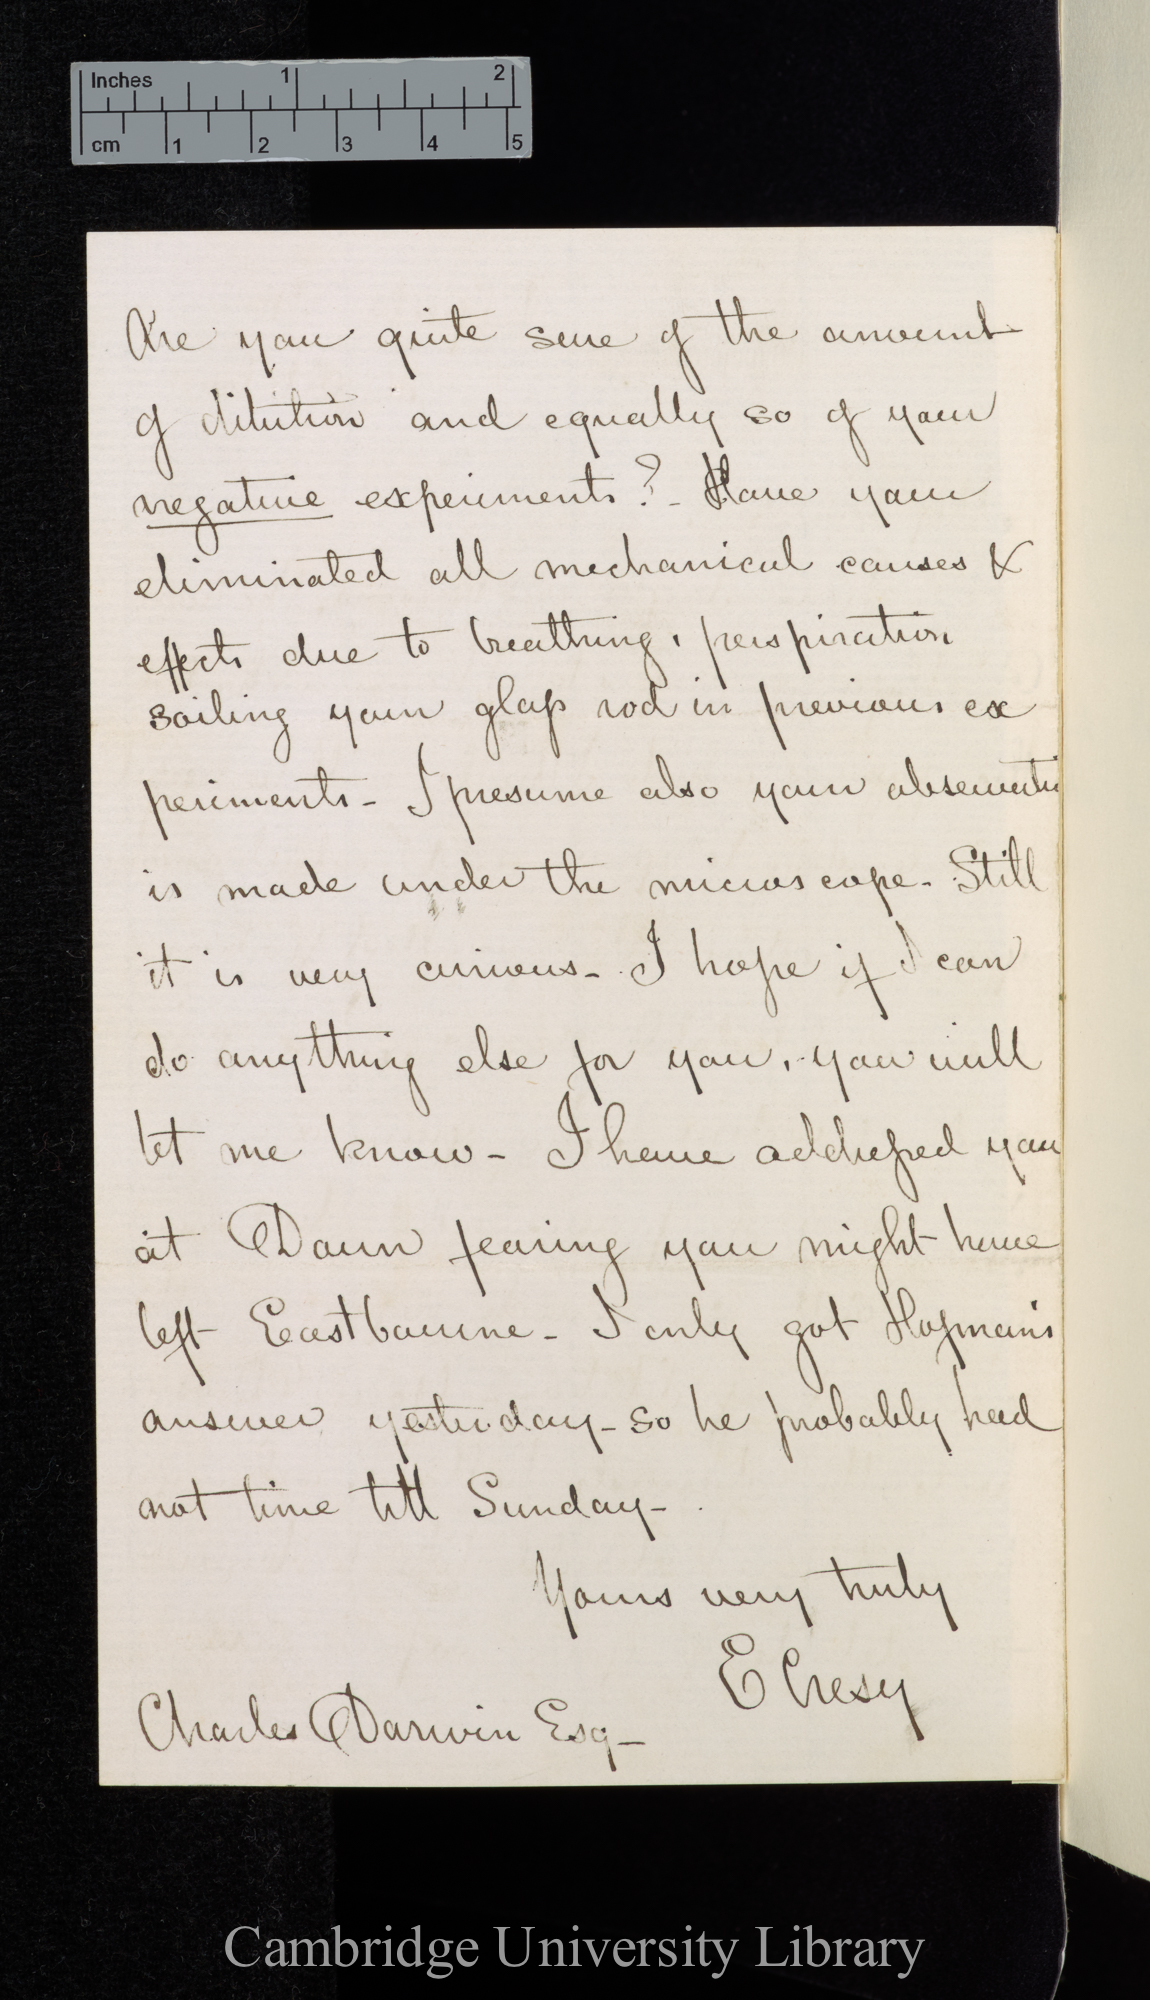 Inches 1 2
cm 1 2 3 4 5
Are you quite sure of the amount
of dilution and equally so of your
negative experiments? - Have you
eliminated all mechanical causes &
effects due to breathing, perspiration
soiling your glass rod in previous ex
periments - I presume also your observati
is made under the microscope - Still
it is very curious - I hope if I can
do anything else for you, you will
let me know - I have addressed you
at Down fearing you might have
left Eastbourne - I only got Hofman's
answer yesterday - so he probably had
not time till Sunday -
Yours very truly
E Cresy
Charles Darwin Esq -
Cambridge University Library